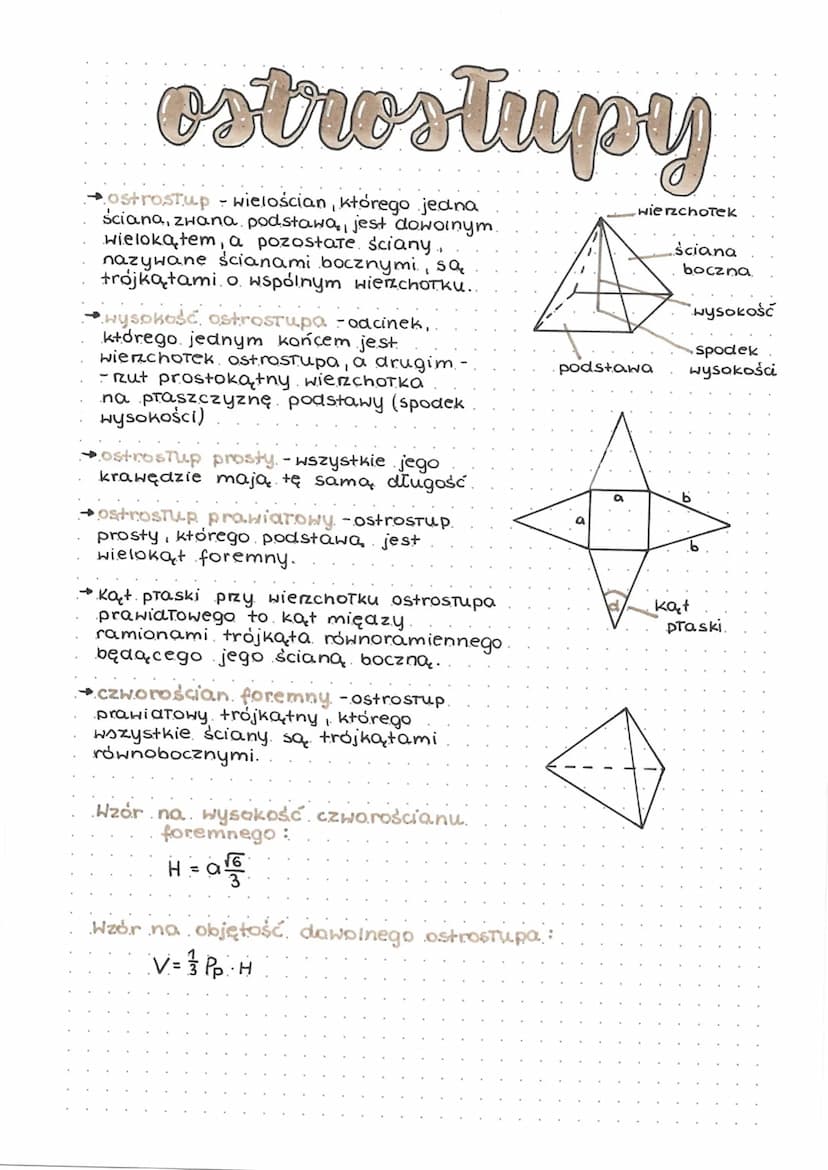 ostrosłupy
→ ostrosłup - wielościan, którego jedna
ściana, zwana podstawą, jest dowolnym
wielokątem, a pozostałe ściany,
nazywane ścianami bocznymi, są
trójkątami o wspólnym wierzchołku.
wierzchołek
ściana
boczna
wysokość
spodek
wysokości
podstawa
→ wysokość ostrosłupa - odcinek,
którego jednym końcem jest
wierzchołek ostrosłupa, a drugim -
- rzut prostokątny wierzchołka
na płaszczyznę podstawy (spodek
wysokości)
→ ostrosłup prosty - wszystkie jego
krawędzie mają tę samą długość
→ ostrosłup prawidłowy - ostrosłup
prosty, którego podstawą jest
wielokąt foremny.
a
b
a
b
α
kąt
płaski
→ Kąt płaski przy wierzchołku ostrosłupa
prawidłowego to kąt między
ramionami trójkąta równoramiennego
będącego jego ścianą boczną.
→ czworościan foremny - ostrosłup
prawidłowy trójkątny, którego
wszystkie ściany są trójkątami
równobocznymi.
Wzór na wysokość czworościanu
foremnego:
H = a √6/3
Wzór na objętość dowolnego ostrosłupa:
V = 1/3 Pp · H